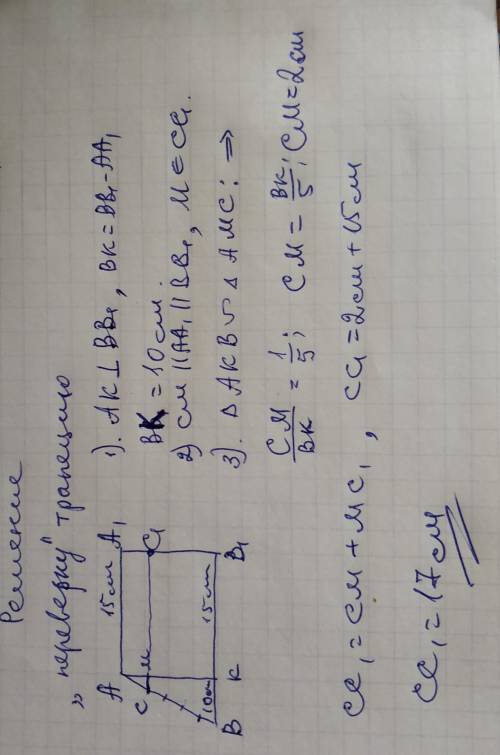 Решение
„переверну" трапецию
A 15см A₁
C M C₁
B 10см K 15см B₁
1). AK⊥BB₁, BK=BB₁-AA₁
BK=10см.
2) CM||AA₁||BB₁, M∈CC₁
3). ΔAKB∽ΔAMC: ⇒
CM/BK = 1/5; CM = BK/5; CM=2см
CC₁=CM+MC₁, CC₁=2см+15см
CC₁=17см